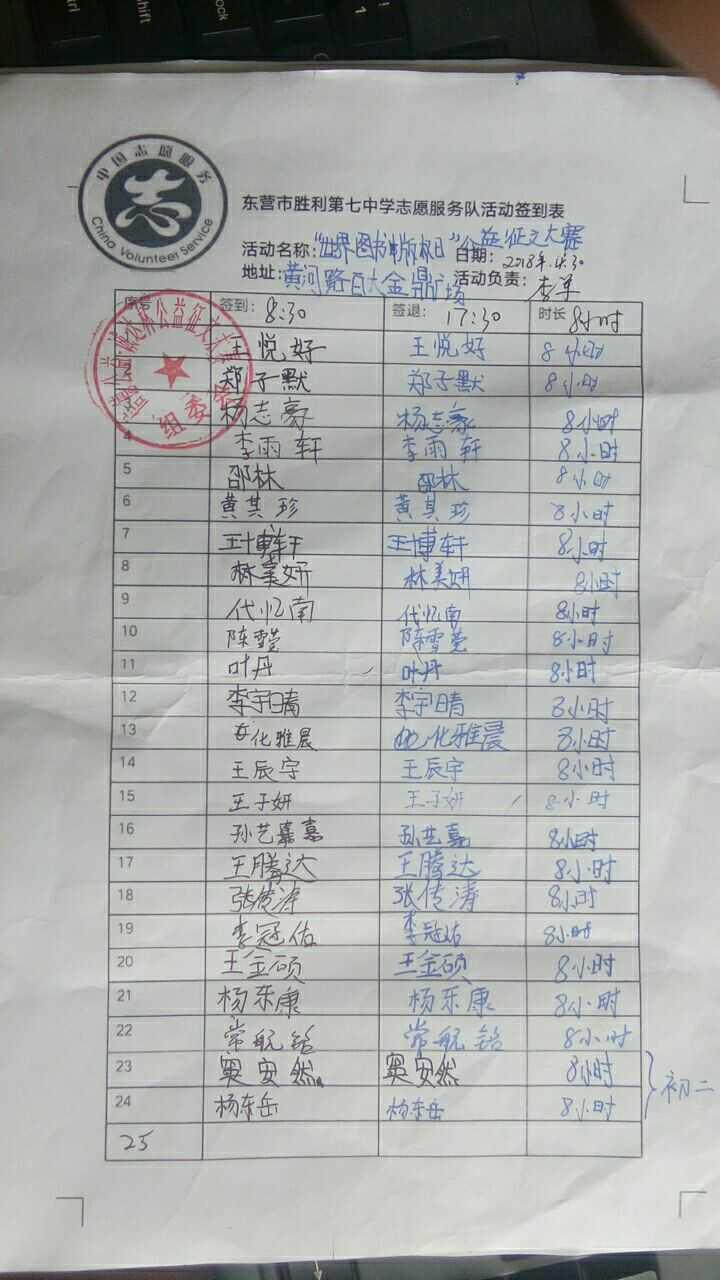 中国志愿服务
China Volunteer Service
东营市胜利第七中学志愿服务队活动签到表
活动名称:"世界图书和版权日"公益征文大赛 日期:2018年4.30
地址:黄河路百大金鼎广场 活动负责:李军
序号 签到:8:30 签退:17:30 时长 8小时
组委会
王悦好 王悦好 8小时
郑子默 郑子默 8小时
杨志豪 杨志豪 8小时
4 李雨轩 李雨轩 8小时
5 邵林 邵林 8小时
6 黄其珍 黄其珍 8小时
7 王博轩 王博轩 8小时
8 林美妍 林美妍 8小时
9 代忆南 代忆南 8小时
10 陈雪莹 陈雪莹 8小时
11 叶丹 叶丹 8小时
12 李宇晴 李宇晴 8小时
13 化雅晨 化雅晨 8小时
14 王辰宇 王辰宇 8小时
15 王子妍 王子妍 8小时
16 孙艺嘉 孙艺嘉 8小时
17 王腾达 王腾达 8小时
18 张传涛 张传涛 8小时
19 李冠佑 李冠佑 8小时
20 王金硕 王金硕 8小时
21 杨乐康 杨乐康 8小时
22 常航铭 常航铭 8小时
23 窦安然 窦安然 8小时
24 杨东岳 杨东岳 8小时
初二
25